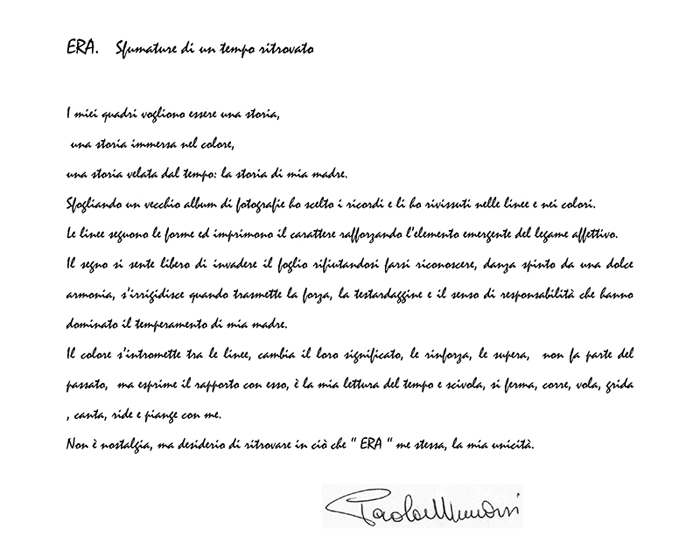 ERA. Sfumature di un tempo ritrovato
I miei quadri vogliono essere una storia,
una storia immersa nel colore,
una storia velata dal tempo: la storia di mia madre.
Sfogliando un vecchio album di fotografie ho scelto i ricordi e li ho rivissuti nelle linee e nei colori.
Le linee seguono le forme ed imprimono il carattere rafforzando l'elemento emergente del legame affettivo.
Il segno si sente libero di invadere il foglio rifiutandosi farsi riconoscere, danza spinto da una dolce
armonia, s'irrigidisce quando trasmette la forza, la testardaggine e il senso di responsabilità che hanno
dominato il temperamento di mia madre.
Il colore s'intromette tra le linee, cambia il loro significato, le rinforza, le supera, non fa parte del
passato, ma esprime il rapporto con esso, è la mia lettura del tempo e scivola, si ferma, corre, vola, grida
, canta, ride e piange con me.
Non è nostalgia, ma desiderio di ritrovare in ciò che " ERA " me stessa, la mia unicità.
Paola